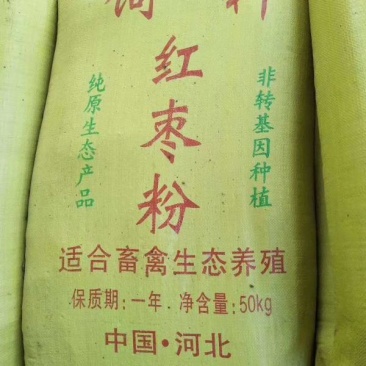 饲料
红枣粉
纯原生态产品
非转基因种植
适合畜禽生态养殖
保质期:一年 净含量:50kg
中国·河北